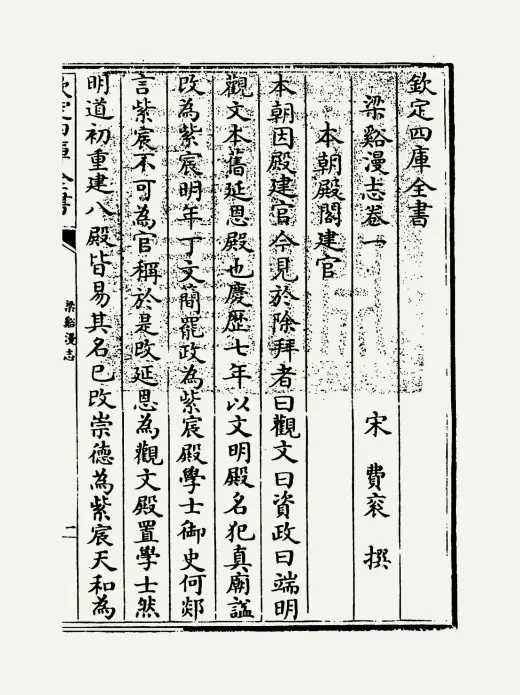 欽定四庫全書
梁谿漫志卷一
宋 費袞 撰
本朝殿閣建官
本朝因殿建官今見於除拜者曰觀文曰資政曰端明
觀文本舊延恩殿也慶歴七年以文明殿名犯真廟諡
改為紫宸明年丁文簡罷政為紫宸殿學士御史何郯
言紫宸不可為官稱於是改延恩為觀文殿置學士然
明道初重建八殿皆易其名已改崇德為紫宸天和為
欽定四庫全書
梁谿漫志